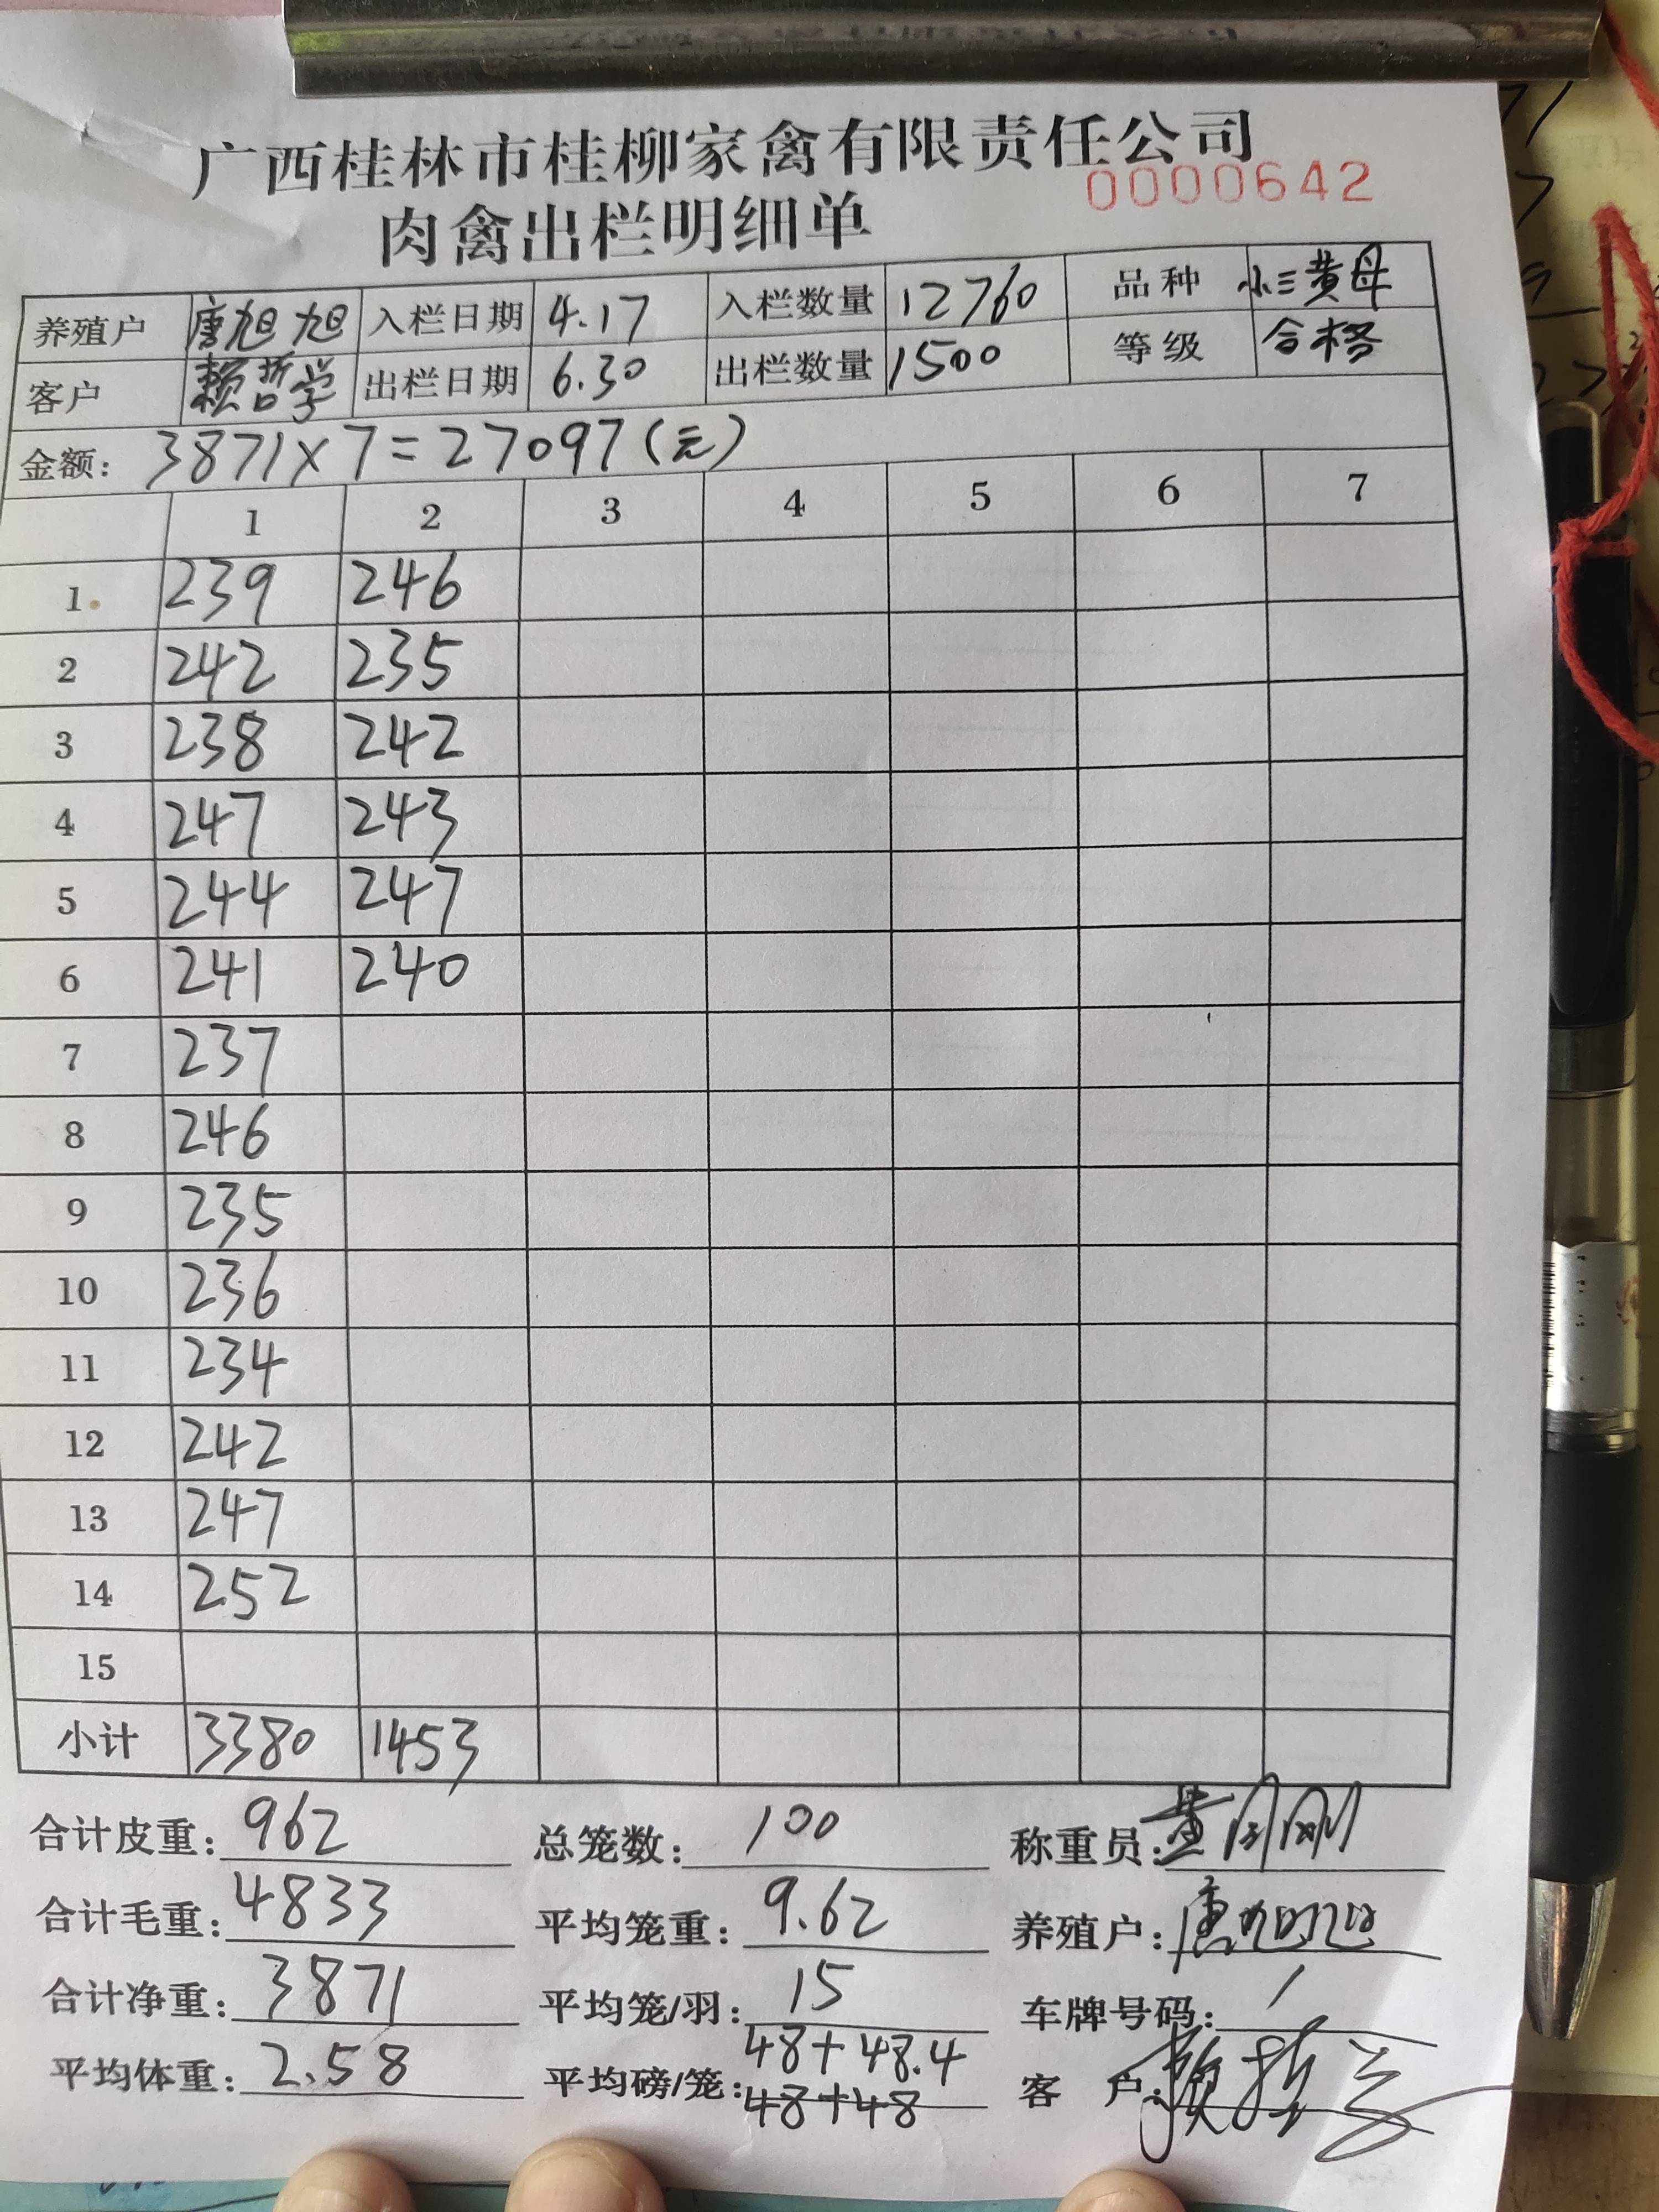 广西桂林市桂柳家禽有限责任公司
0000642
肉禽出栏明细单
养殖户 唐旭旭 入栏日期 4.17 入栏数量 12760 品种 小三黄母
客户 赖哲学 出栏日期 6.30 出栏数量 1500 等级 合格
金额: 3871×7=27097(元)
1 2 3 4 5 6 7
1 239 246
2 242 235
3 238 242
4 247 243
5 244 247
6 241 240
7 237
8 246
9 235
10 236
11 234
12 242
13 247
14 252
15
小计 3380 1453
合计皮重: 962 总笼数: 100 称重员:
合计毛重: 4833 平均笼重: 9.62 养殖户: 唐旭旭
合计净重: 3871 平均笼/羽: 15 车牌号码: /
平均体重: 2.58 平均磅/笼: 48+48.4 客户: 赖哲学
48+48